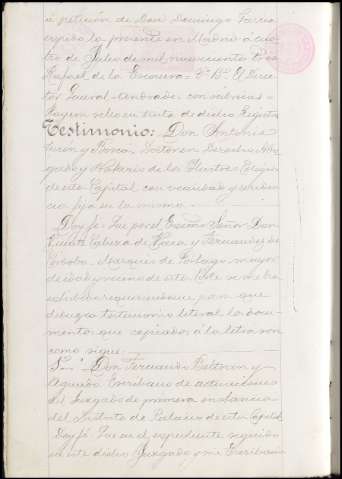 á petición de Don Domingo García
expido la presente en Madrid á cua
tro de Julio de mil novecientos
Rafael de la Escosura = Vº Bº El Direc
tor General
Hay un sello en tinta de dicho Registro
Testimonio: Don Antonio
Turón y Boscá, Doctor en Derecho, Abo
gado y Notario de los Ilustres Colegios
de esta Capital con vecindad y residen
cia fija en la misma
Doy fé: Que por el Excmo Señor Don
Vicente Cabeza de Vaca y Fernandez de
Córdoba Marqués de Portago mayor
de edad y vecino de esta Corte se me ha
exhibido requiriéndome para que
deduzca testimonio literal los docu
mentos que copiados á la letra son
como sigue:
Don Fernando Beltrán y
Aguado Escribano de actuaciones
del Juzgado de primera instancia
del Distrito de Palacio de esta Capital
Doy fé: Que en el expediente seguido
en este dicho Juzgado y mi Escribanía